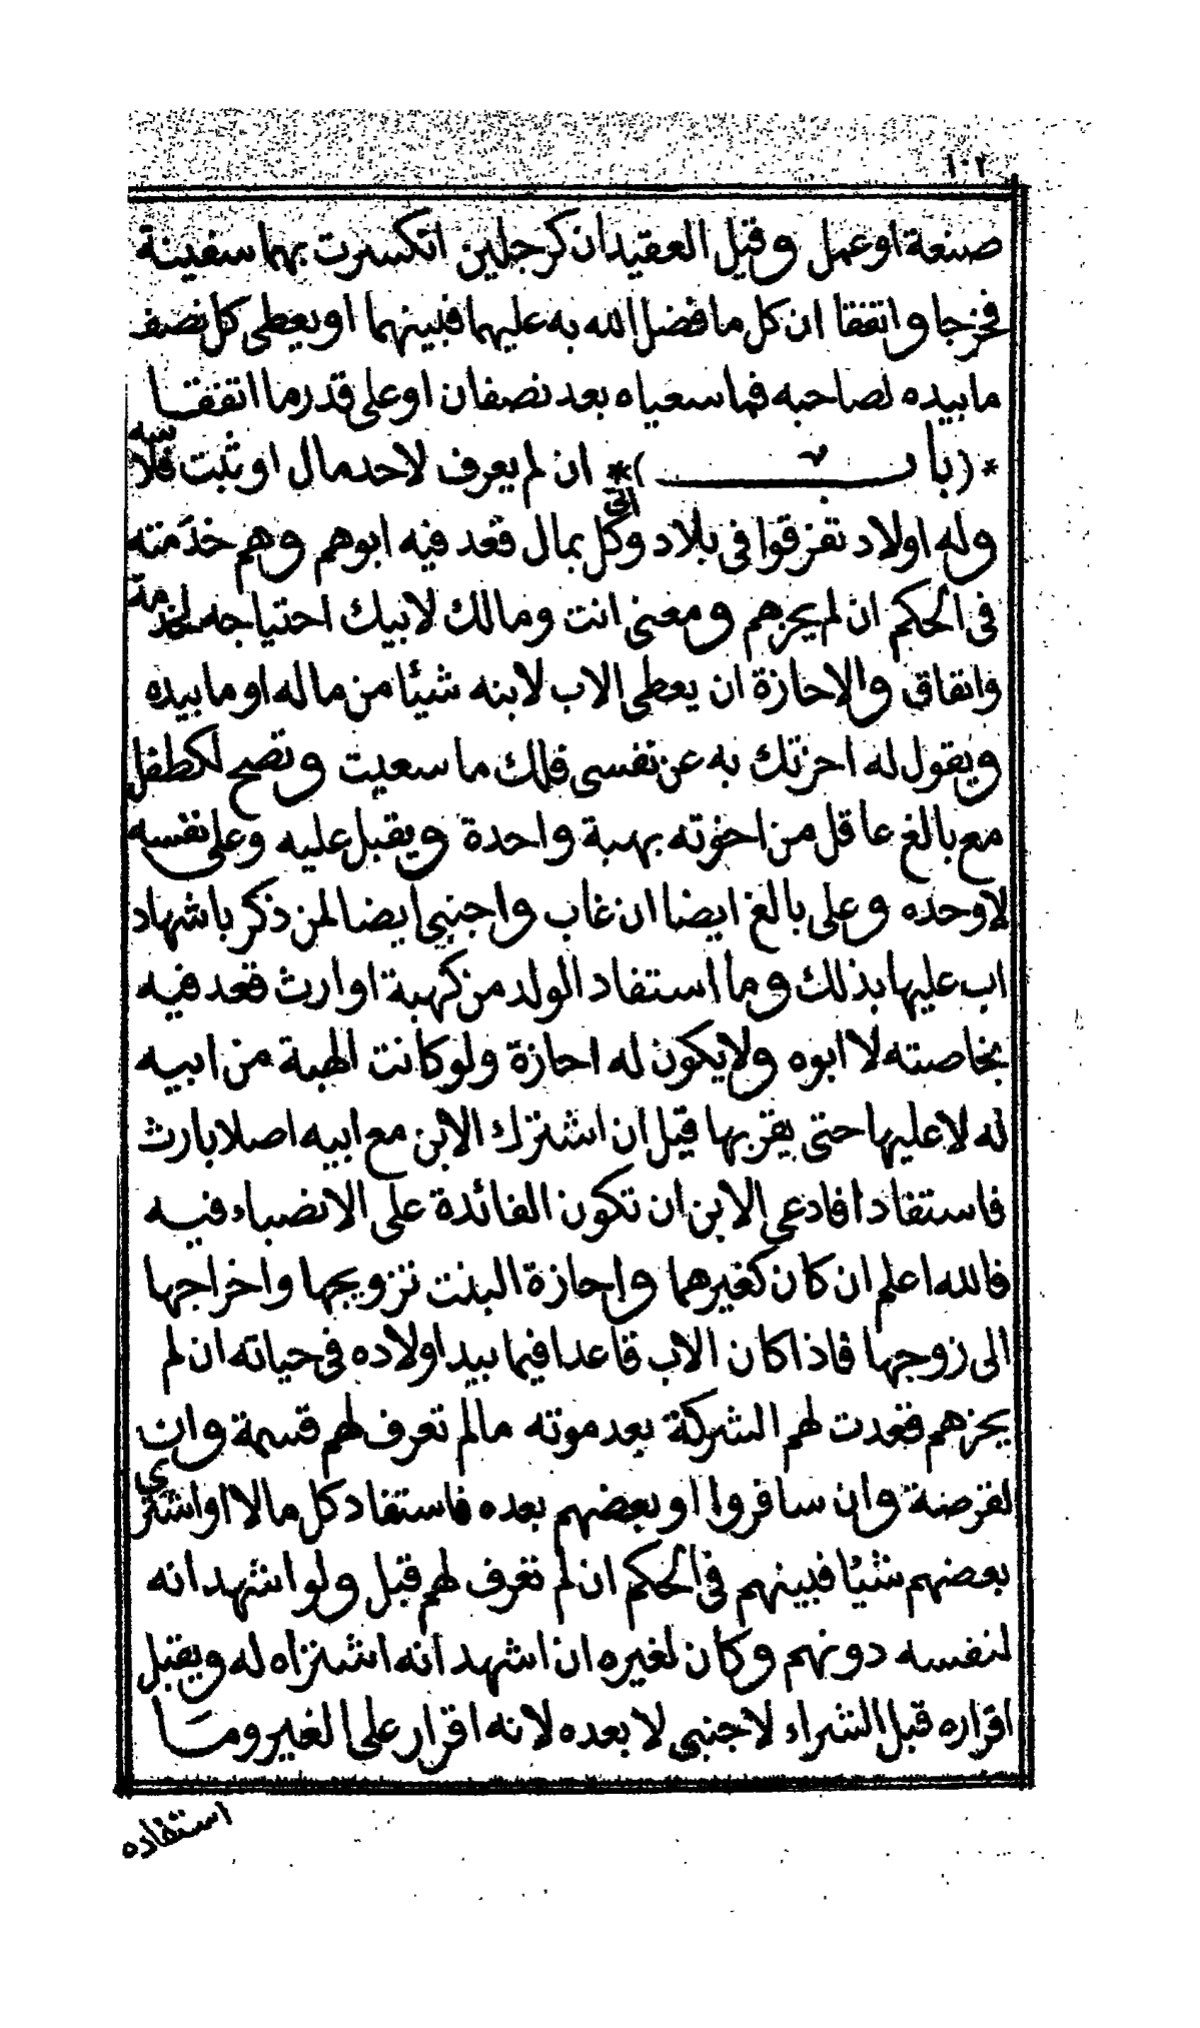 ١٠٢
صنعة او عمل وقيل العقيدان كرجلين انكسرت بهما سفينة
فخرجا واتفقا ان كل ما فضل الله به عليهما فبينهما او يعطى كل نصف
ما بيده لصاحبه فما سعياه بعد نصفان او على قدر ما اتفقا
*(باب)* ان لم يعرف لاحد مال او ثبت فلابيه
وله اولاد تفرقوا فى بلاد وكل اتى بمال قعد فيه ابوهم وهم خدمته
فى الحكم ان لم يحزهم ومعنى انت ومالك لابيك احتياجه لخدمة
وانفاق والاحازة ان يعطى الاب لابنه شيئا من ماله او ما بيده
ويقول له احزتك به عن نفسى فلك ما سعيت وتصح لكطفل
مع بالغ عاقل من اخوته بهبة واحدة ويقبل عليه وعلى نفسه
لا وحده وعلى بالغ ايضا ان غاب واجنبي ايضا لمن ذكر باشهاد
اب عليها بذلك وما استفاد الولد من كهبة او ارث قعد فيه
بخاصته لا ابوه ولا يكون له احازة ولو كانت الهبة من ابيه
له لا عليها حتى يقر بها قيل ان اشترك الابن مع ابيه اصلا بارث
فاستفادا فادعى الابن ان تكون الفائدة على الانضباء فيه
فالله اعلم ان كان كغيرهما واحازة البنت تزويجها واخراجها
الى زوجها فاذا كان الاب قاعدا فيما بيد اولاده فى حياته ان لم
يحزهم فقعدت لهم الشركة بعد موته ما لم تعرف لهم قسمة وان
لفرضة وان سافروا او بعضهم بعده فاستفاد كل مالا او اشترى
بعضهم شيئا فبينهم فى الحكم ان لم تعرف لهم قبل ولو اشهد انه
لنفسه دونهم وكان لغيره ان اشهد انه اشتراه له ويقبل
اقراره قبل الشراء لاجنبي لا بعده لانه اقرار على الغير وما
استفاده